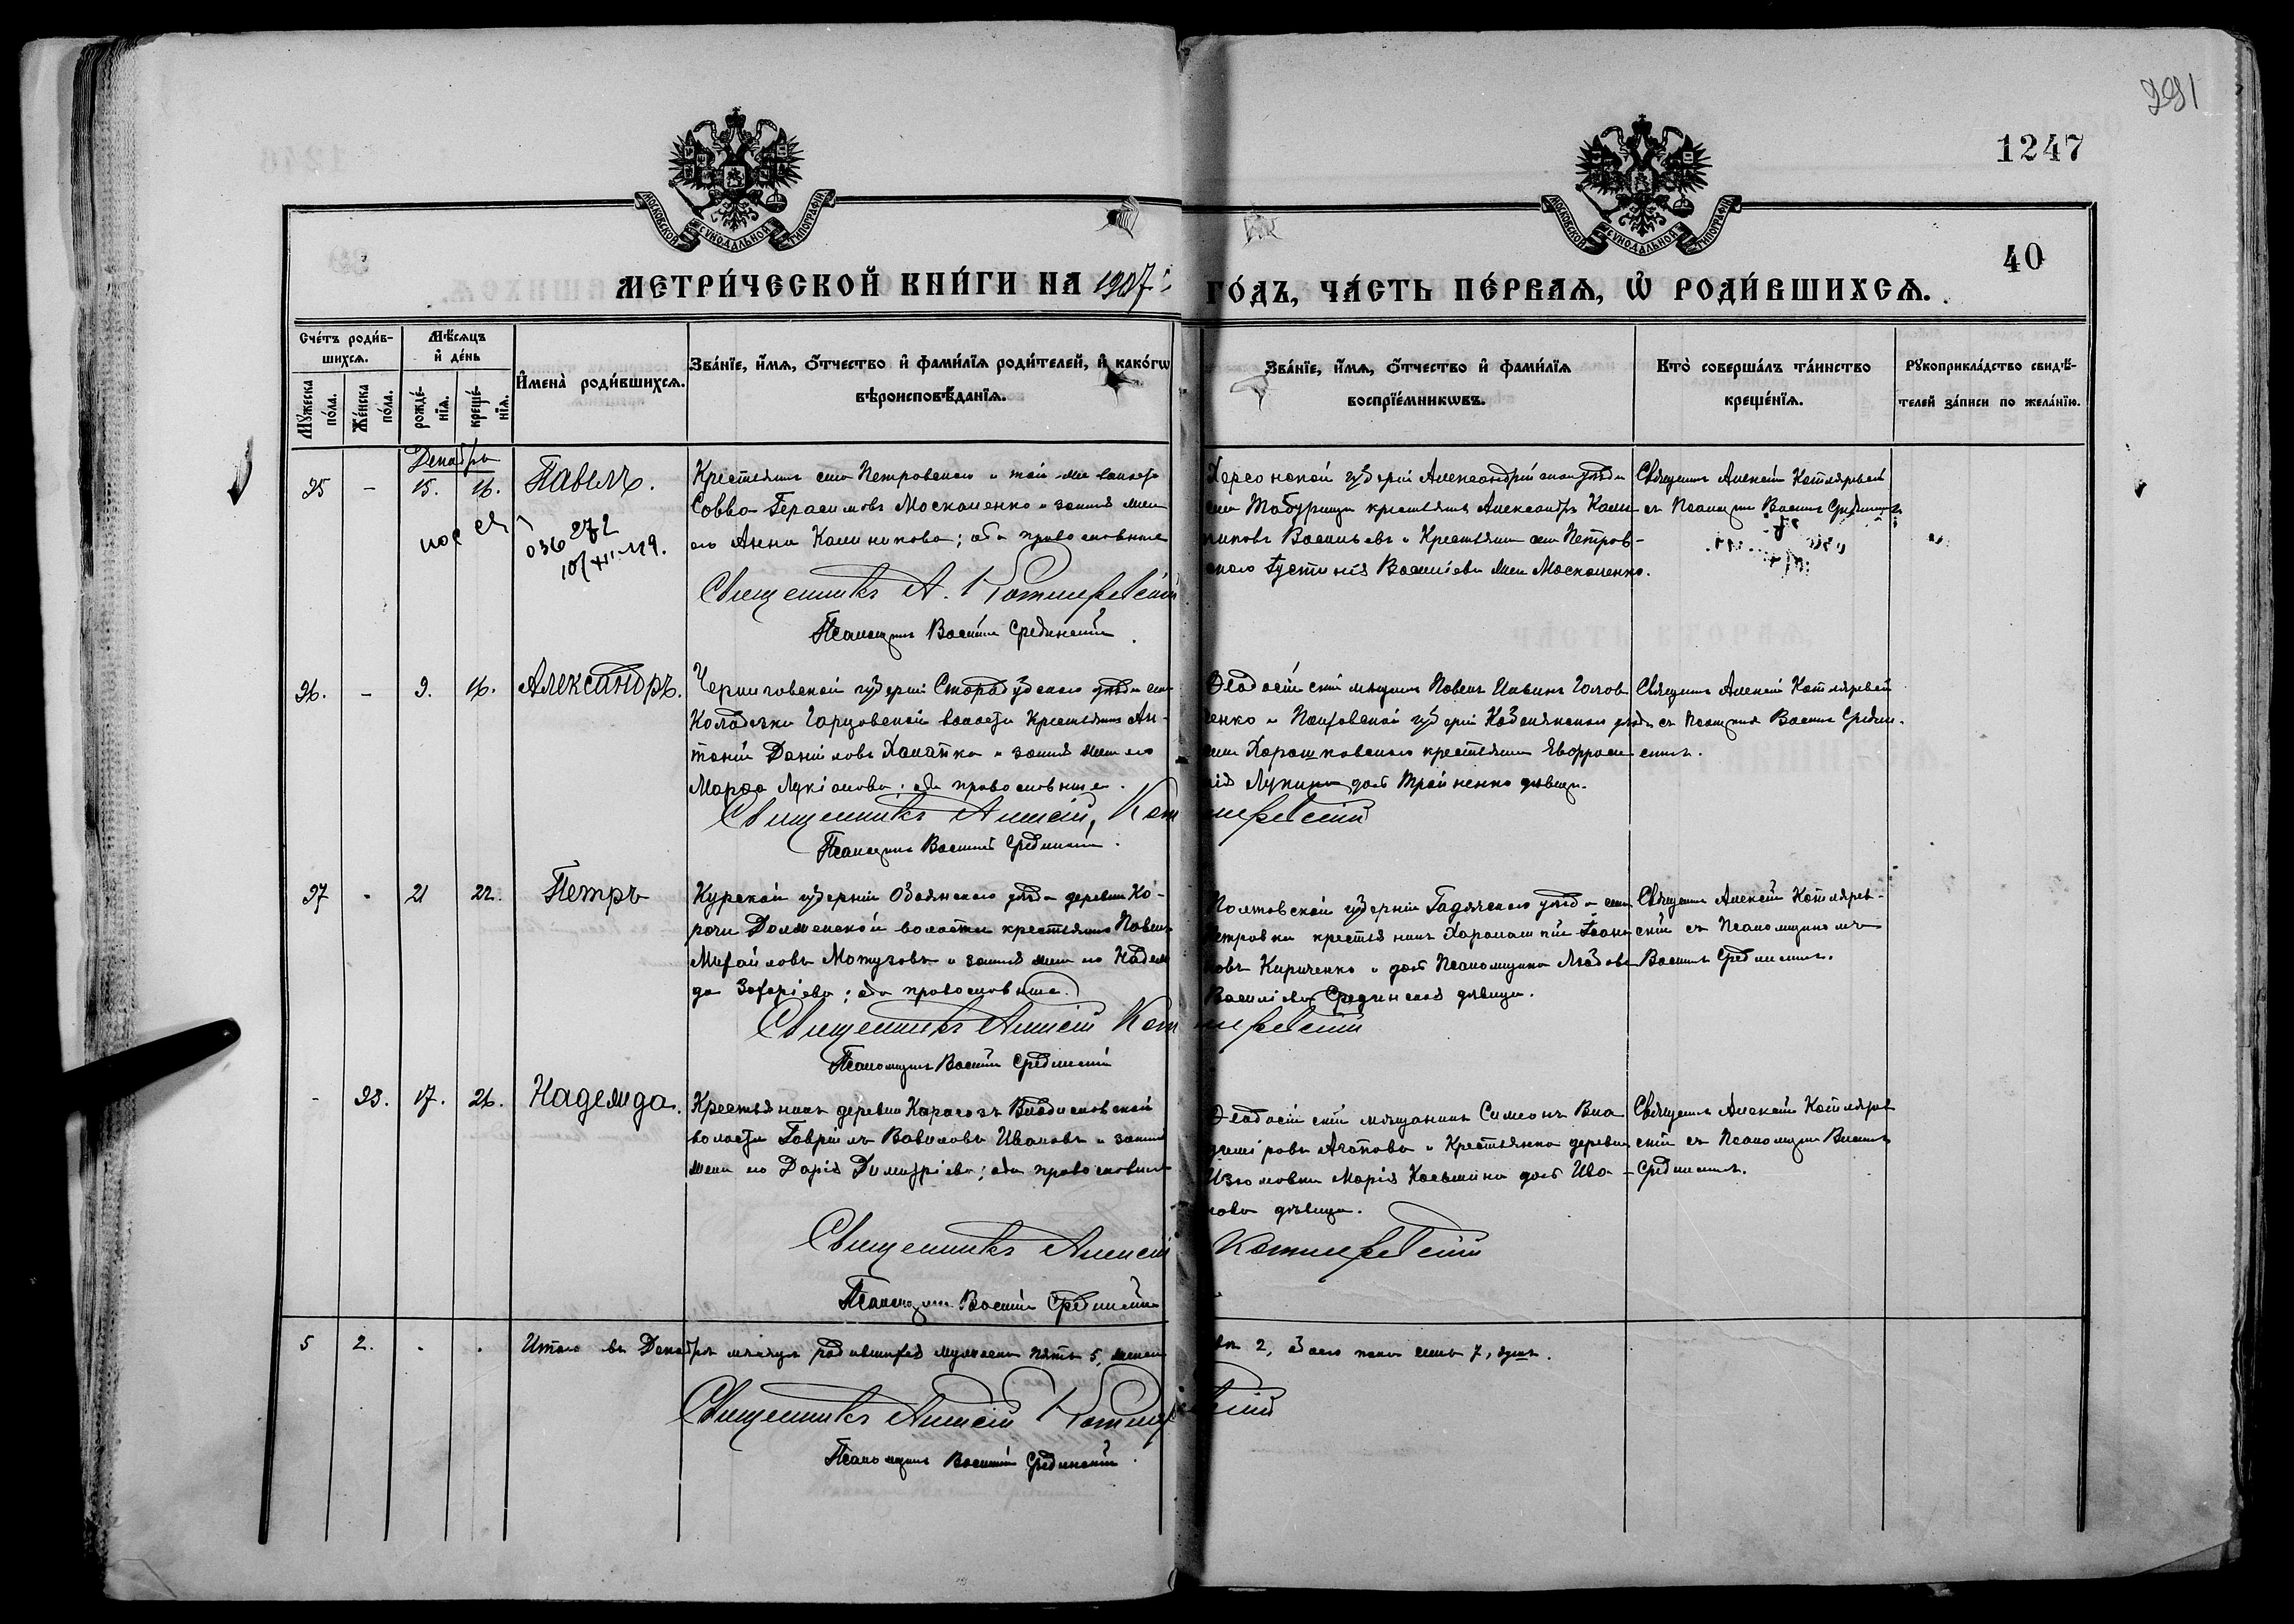 291
1247
40
МОСКОВСКОЙ СѴНОДАЛЬНОЙ ТИПОГРАФІИ
МОСКОВСКОЙ СѴНОДАЛЬНОЙ ТИПОГРАФІИ
МЕТРИ́ЧЕСКОЙ КНИ́ГИ НА 1907 ГО́ДЪ, ЧА́СТЬ ПЕ́РВАѦ, Ѽ РОДИ́ВШИХСѦ.
Сче́тъ роди́в-
шихсѧ.
Мꙋ́жеска по́ла.
Же́нска по́ла.
Мѣ́сѧцъ
и҆ де́нь
рожде́-
нїѧ.
креще́-
нїѧ.
И҆мена̀ роди́вшихсѧ.
Зва́нїе, и҆́мѧ, ѻ҆́тчество и҆ фами́лїѧ роди́телей, и҆ како́гѡ
вѣроисповѣ́данїѧ.
Зва́нїе, и҆́мѧ, ѻ҆́тчество и҆ фами́лїѧ
воспрїе́мникѡвъ.
Кто̀ соверша́лъ та́инство
креще́нїѧ.
Рꙋкоприкла́дство свидѣ́-
телей за́писи по жела́нїю.
Декабрь
25 - 15. 16. Павелъ.
272
10/XII-119.
Крестьянинъ села Петровскаго и той-же волости
Савва Герасимовъ Москаленко и законная жена
его Анна Калиникова; оба православные
Священникъ А. Котляревскій
Псаломщикъ Василій Срединскій.
Херсонской губерніи Александрійскаго уѣзда
села Табурища крестьянинъ Александръ Кали-
никовъ Васильевъ и Крестьянка села Петров-
скаго Іустинія Василіева жена Москаленко.
Священникъ Алексій Котляревскій
съ Псаломщикомъ Василіемъ Срединскимъ
26. - 9. 16. Александръ.
Черниговской губерніи Стародубскаго уѣзда села
Колодезки Гарцовской волости Крестьянинъ Ан-
тоній Даніиловъ Халатка и законная жена его
Марѳа Лукіанова; оба православные.
Священникъ Алексій Котляревскій
Псаломщикъ Василій Срединскій.
Ѳеодосійскій мѣщанинъ Павелъ Голов-
ченко и Полтавской губерніи уѣзда
села крестьянка Евфроси-
нія Лукина дочь дѣвица.
Священникъ Алексій Котляревскій
съ Псаломщикомъ Василіемъ Средин-
скимъ.
27 - 21 22. Петръ
Курской губерніи Обоянскаго уѣзда деревни Ко-
рочи Долженской волости крестьянинъ Павелъ
Михайловъ Мотузовъ и законная жена его Надеж-
да Захаріева; оба православные.
Священникъ Алексій Котляревскій
Псаломщикъ Василій Срединскій
Полтавской губерніи Гадячскаго уѣзда села
Петровки крестьянинъ Харалампій Іоан-
новъ Кириченко и дочь Псаломщика Любовь
Василіева Срединская дѣвица.
Священникъ Алексій Котлярев-
скій съ Псаломщикомъ
Василіемъ Срединскимъ.
- 23. 17. 26. Надежда.
Крестьянинъ деревни Карагозъ Владиславской
волости Гавріилъ Вавиловъ Ивановъ и законная
жена его Дарія Димитріева; оба православные
Священникъ Алексій Котляревскій
Псаломщикъ Василій Срединскій
Ѳеодосійскій мѣщанинъ Симеонъ Вла-
диміровъ и Крестьянка деревни
Изюмовки Марія Косьмина дочь Ива-
нова дѣвица.
Священникъ Алексій Котлярев-
скій съ Псаломщикомъ Василіемъ
Срединскимъ.
5 2. . . Итого въ Декабрѣ мѣсяцѣ родившихся мужеска пять 5, женска два 2, обоего пола семь 7, душъ.
Священникъ Алексій Котляревскій
Псаломщикъ Василій Срединскій.